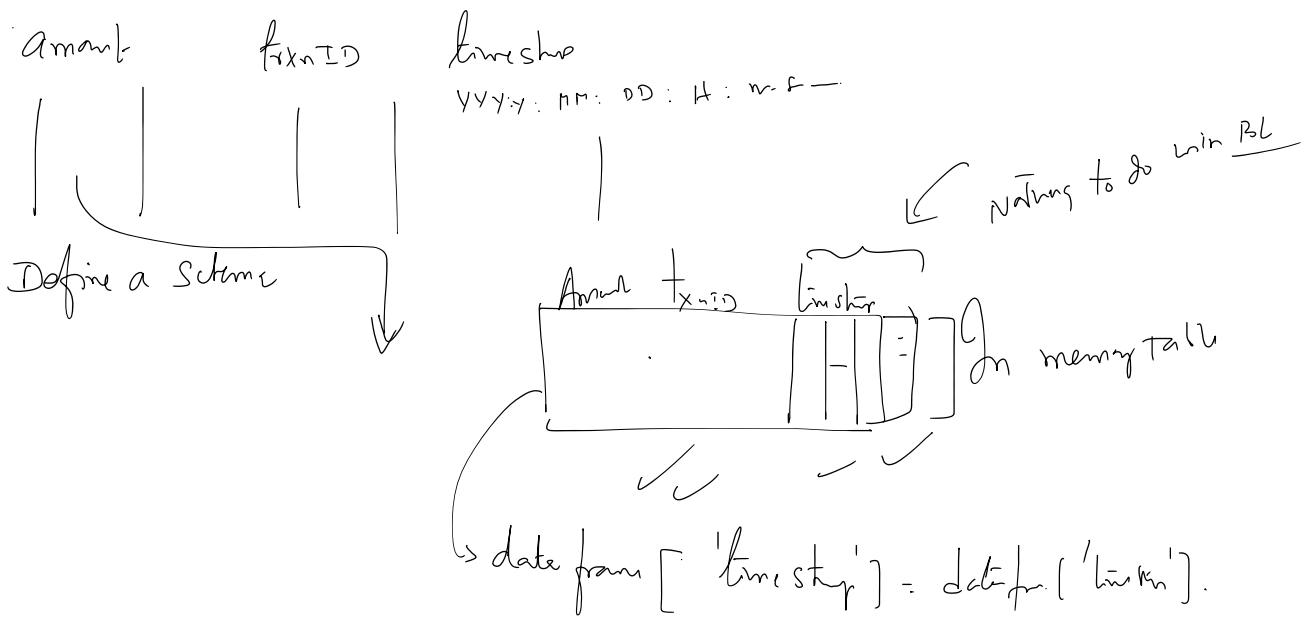 amount trxnID timestamp
YYYY: MM: DD: H: m-s
Nothing to do with BL
Define a Schema
Amount txnID timestamp
In memory table
dataframe ['timestamp'] =